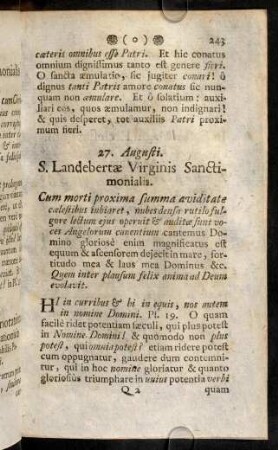 ( o )
243
cæteris omnibus esso Patri. Et hic conatus
omnium dignissimus tanto est genere fieri.
O sancta æmulatio, sic jugiter conari! ô
dignus tanti Patris amore conatus sic nun-
quam non æmulare. Et ô solatium: auxi-
liari eos, quos æmulamur, non indignari!
& quis desperet, tot auxiliis Patri proxi-
mum fieri.
27. Augusti.
S. Landebertæ Virginis Sancti-
monialis.
Cum morti proxima summa aviditate
cælestibus inhiaret, nubes densior rutilo ful-
gore lectum ejus operuit & auditæ sunt vo-
ces Angelorum canentium cantemus Do-
mino gloriosè enim magnificatus est
equum & ascensorem dejecit in mare, for-
titudo mea & laus mea Dominus &c.
Quem inter plausum felix anima ad Deum
evolavit.
HI in curribus & hi in equis, nos autem
in nomine Domini. Ps. 19. O quam
facilè ridet potentiam sæculi, qui plus potest
in Nomine Domini! & quomodo non plus
potest, qui omnia potest? etiam ridere potest
cum oppugnatur, gaudere dum contemni-
tur, qui in hoc nomine gloriatur & quanto
gloriosius triumphare in unius potentia verbi
Q 2
quam